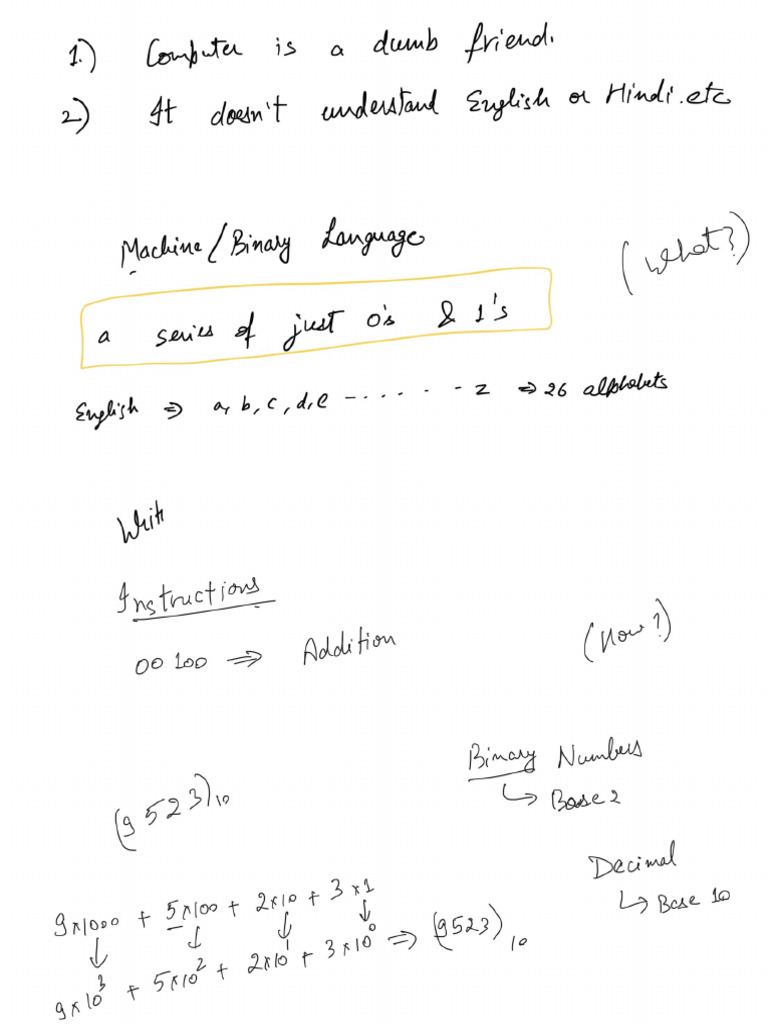 1.) Computer is a dumb friend.
2) It doesn't understand English or Hindi.etc
Machine/Binary Language
(What?)
a series of just 0's & 1's
English ⇒ a, b, c, d, e -...... - z ⇒ 26 alphabets
Write
Instructions
00 100 ⇒ Addition
(How?)
Binary Numbers
↳ Base 2
(9523)₁₀
Decimal
↳ Base 10
9×1000 + 5×100 + 2×10 + 3×1
↓ ↓ ↓ ↓
9×10³ + 5×10² + 2×10¹ + 3×10⁰ ⇒ (9523)₁₀